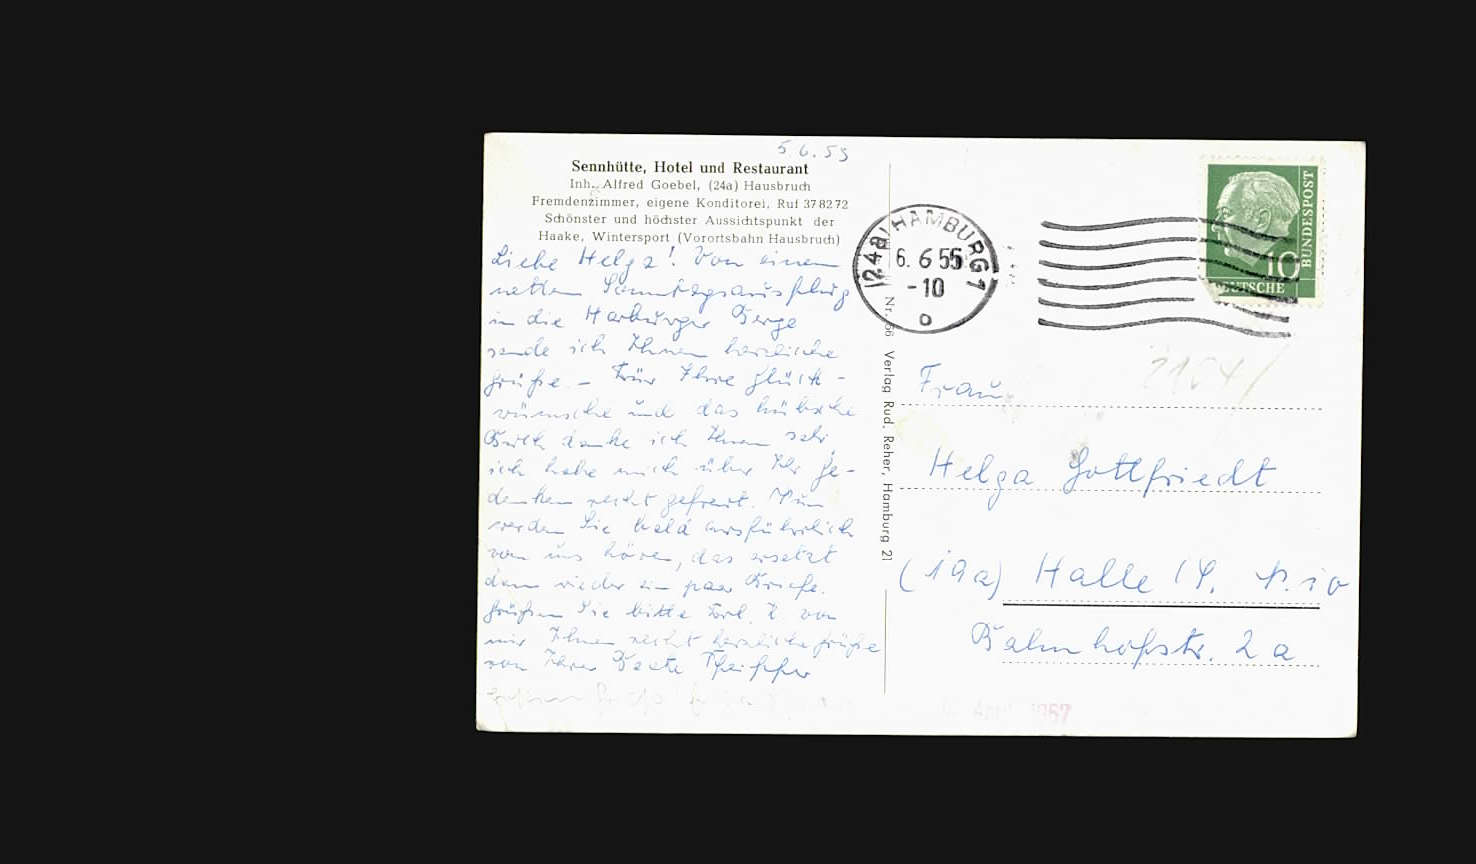 5.6.55
Sennhütte, Hotel und Restaurant
Inh. Alfred Goebel, (24a) Hausbruch
Fremdenzimmer, eigene Konditorei, Ruf 37 82 72
Schönster und höchster Aussichtspunkt der
Haake, Wintersport (Vorortsbahn Hausbruch)
Liebe Helga! Von einem
netten Sonntagsausflug
in die Harburger Berge
sende ich Ihnen herzliche
Grüße. – Für Ihre Glück-
wünsche und das hübsche
Buch danke ich Ihnen sehr,
ich habe mich über Ihr Ge-
denken recht gefreut. Nun
werden Sie bald ausführlich
von uns hören, das ersetzt
dann wieder ein paar Briefe.
Grüßen Sie bitte Frl. Z. von
mir. Ihnen recht herzliche Grüße
von Ihrer Beate Pfeiffer
(24a) HAMBURG 1
6.6.55
-10
o
BUNDESPOST
10
DEUTSCHE
Verlag Rud. Reher, Hamburg 21
Frau
Helga Gottfriedt
(19a) Halle /S.
Bahnhofstr. 2a